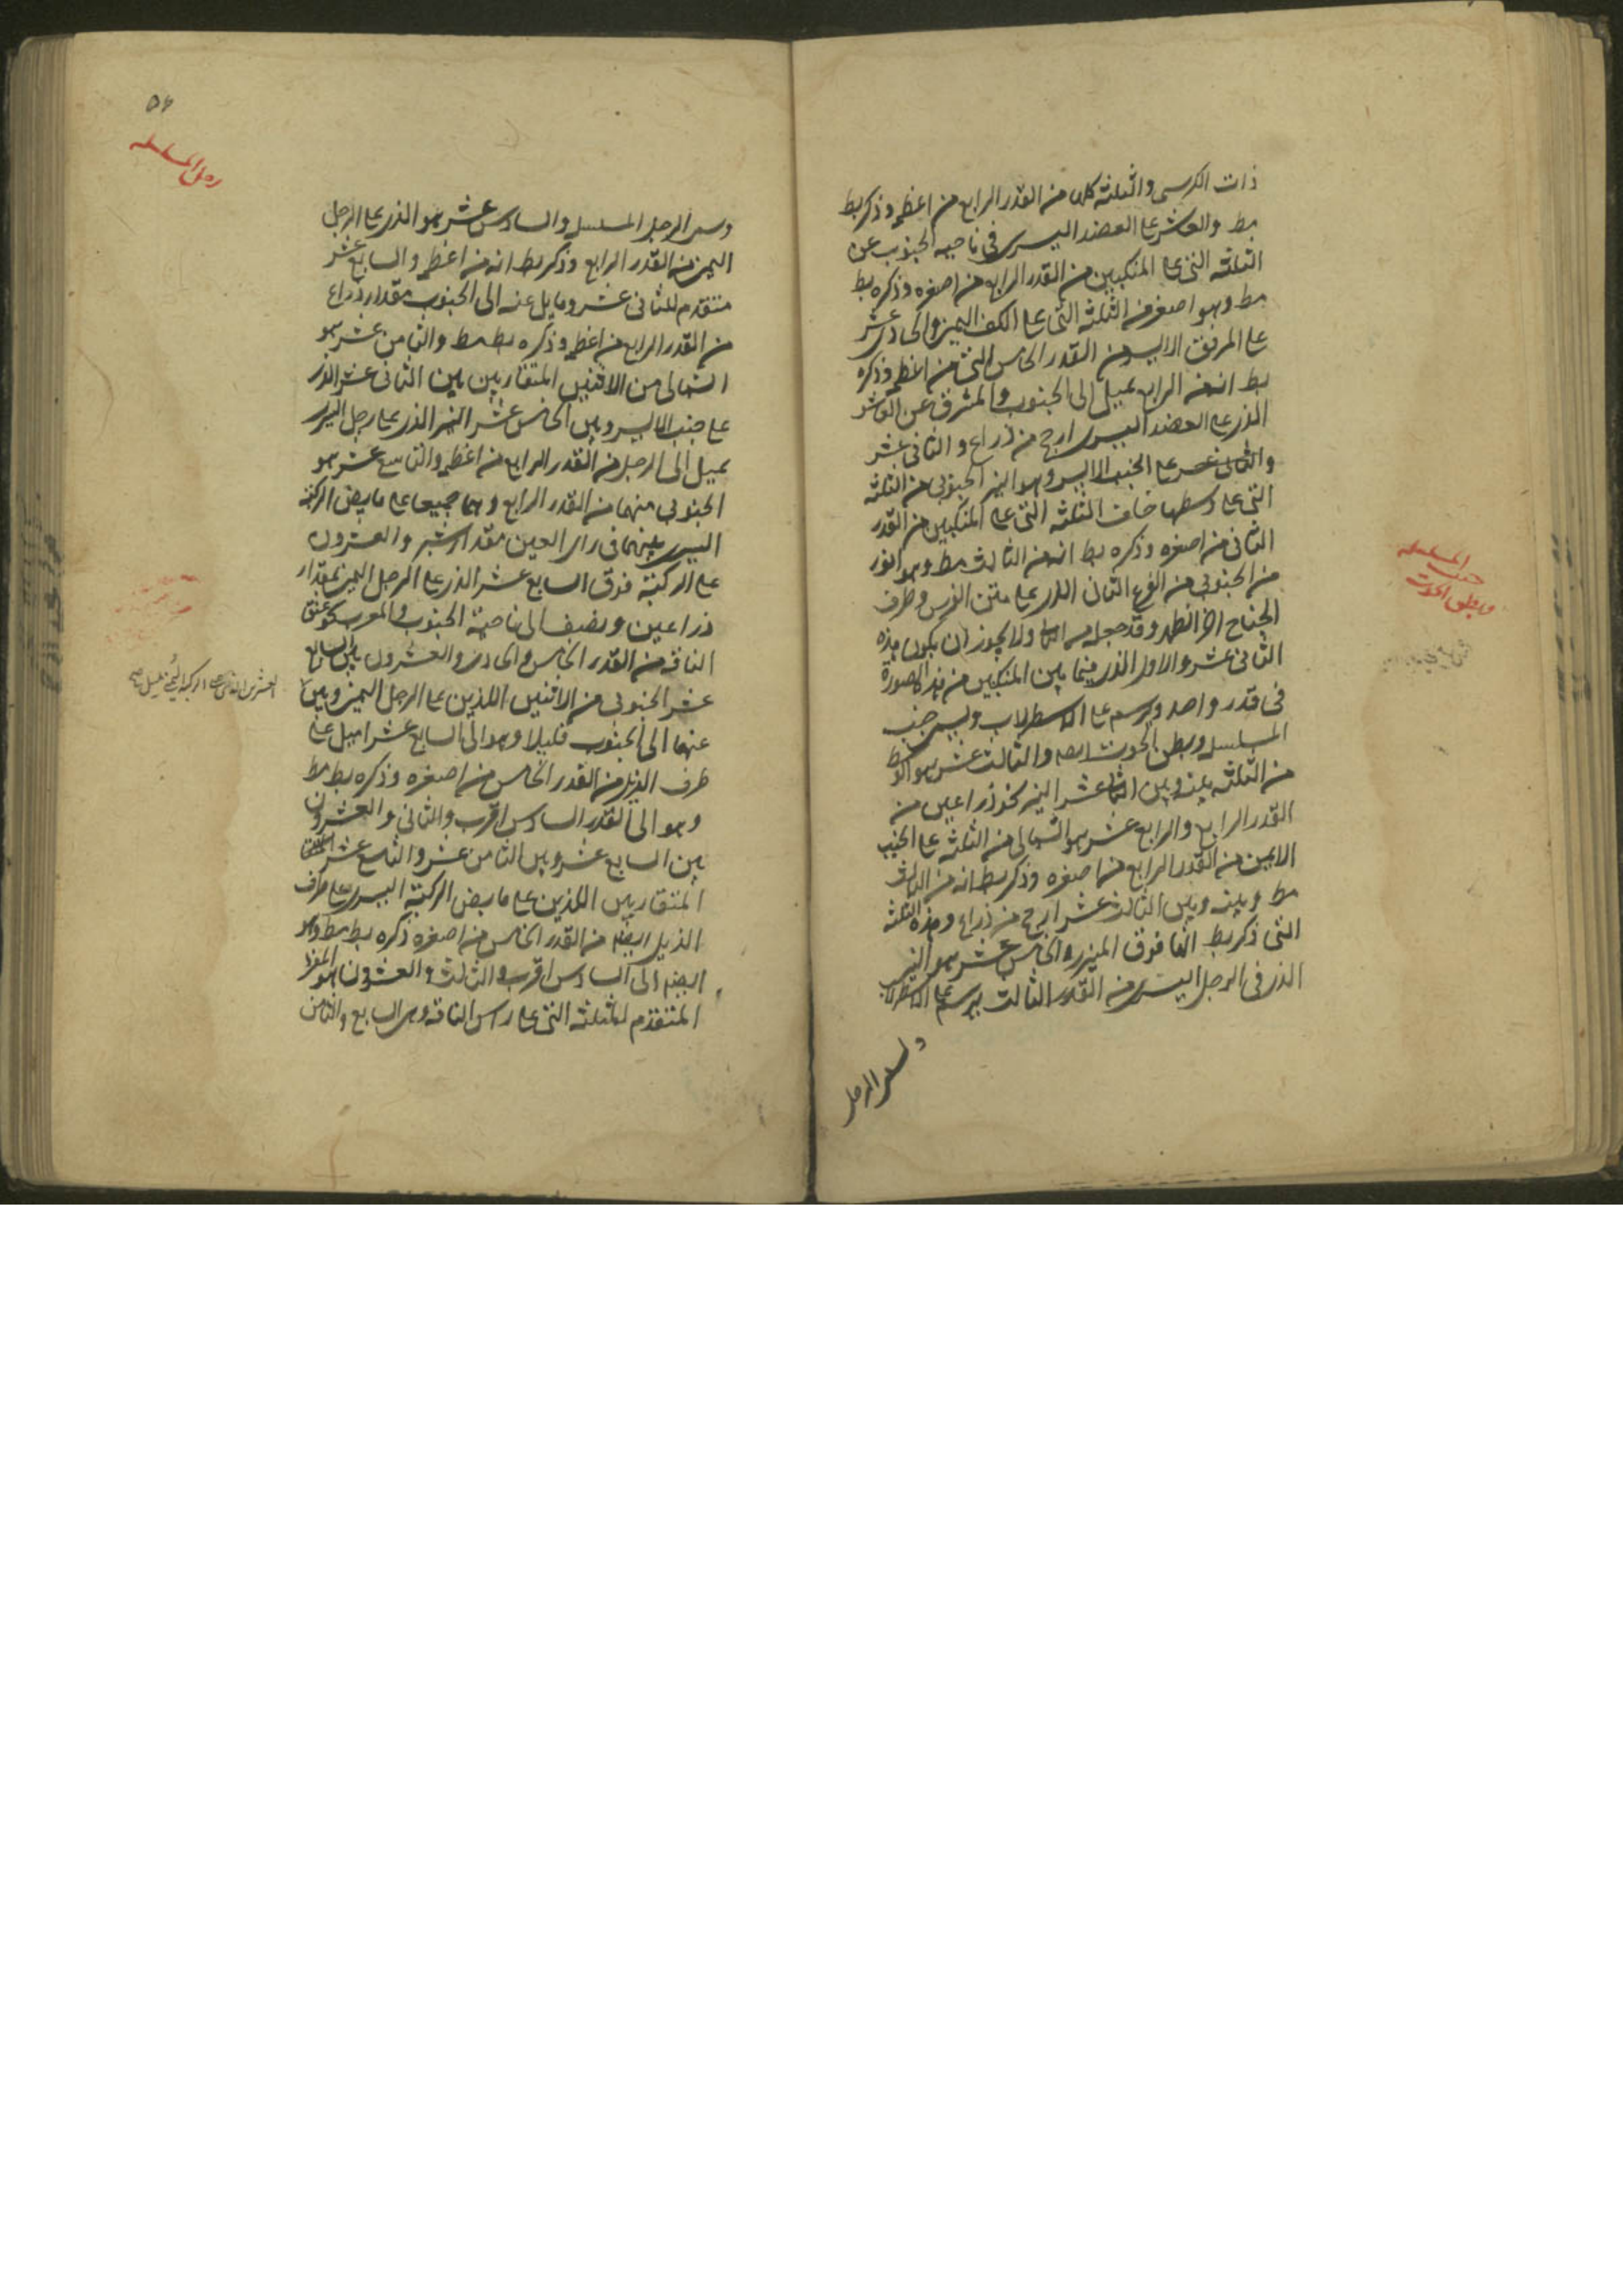 ذات الكرسى والثلثة كلها من القدر الرابع من اعظمه وذكر بط
مط والعاشر على العضد اليسرى فى ناحيه الجنوب عن
الثلثه التى على المنكبين من القدر الرابع من اصغره وذكره بط
مط وهو اصغر من الثلثه التى على الكف اليمنى والحادى عشر
على المرفق الايسر من القدر الخامس من اعظمه وذكره
بط انه من الرابع يميل الى الجنوب والمشرق عن العاشر
الذى على العضد اليسرى ارجح من ذراع والثانى عشر
على الجنب الايسر وهو النير الجنوبى من الثلثه
التى على وسطها خلف الثلثه التى على المنكبين من القدر
الثانى من اصغره وذكره بط انه من الثالث مط وهو انور
من الجنوبى من الفرغ الثانى الذى على متن الفرس وطرف
الجناح وقد جعله ولا يجوز ان يكون هذه
الثانى عشر والاول الذى فيما بين المنكبين من هذه الصورة
فى قدر واحد ويرسم على الاسطرلاب ويسمى جنب
المسلسله وبطن الحوت ايضا والثالث عشر هو الاوسط
من الثلثه بينه وبين الثانى عشر النير نحو ذراعين من
القدر الرابع والرابع عشر هو الشمالى من الثلثه على الجنب
الايمن من القدر الرابع من اصغره وذكر بط انه من الثالث
مط وبينه وبين الثالث عشر ارجح من ذراع وهذه الثلثه
التى ذكر بط انها فوق الميزر والخامس عشر هو النير
الذى فى الرجل اليسرى من القدر الثالث يرسم على الاسطرلاب
ويسمى الرجل
المسلسله
جنب
وبطن الحوت
٥٦
رجل المسلسله
ويسمى الرجل المسلسله والسادس عشر هو الذى على الرجل
اليمنى من القدر الرابع وذكر بط انه من اعظمه والسابع عشر
متقدم للثانى عشر ومايل عنه الى الجنوب مقدار ذراع
من القدر الرابع من اعظمه وذكره بط مط والثامن عشر هو
الشمالى من الاثنين المتقاربين بين الثانى عشر الذى
على جنب الايسر وبين الخامس عشر النير الذى على رجل اليسرى
يميل الى الرجل من القدر الرابع من اعظمه والتاسع عشر هو
الجنوبى منهما من القدر الرابع وهما جميعا على مابض الركبة
اليسرى بينهما فى راى العين مقدار شبر والعشرون
على الركبة فوق السابع عشر الذى على الرجل اليمنى بمقدار
ذراعين ونصف الى ناحية الجنوب والمغرب نحو عنق
الناقه من القدر الخامس والحادى والعشرون بين السابع
عشر الجنوبى من الاثنين اللذين على الرجل اليمنى وبين
عنهما الى الجنوب قليلا وهو الى السابع عشر اميل على
طرف الذيل من القدر الخامس من اصغره وذكره بط مط
وهو الى القدر السادس اقرب والثانى والعشرون
بين السابع عشر وبين الثامن عشر والتاسع عشر
المتقاربين اللذين على مابض الركبة اليسرى على طرف
الذيل ايضا من القدر الخامس من اصغره ذكره بط مط وهو
ايضا الى السادس اقرب والثالث والعشرون هو المفرد
المتقدم للثلثه التى على راس الناقه وهى السابع والثامن
العشرين الذى على الركبة اليمنى يميل صح